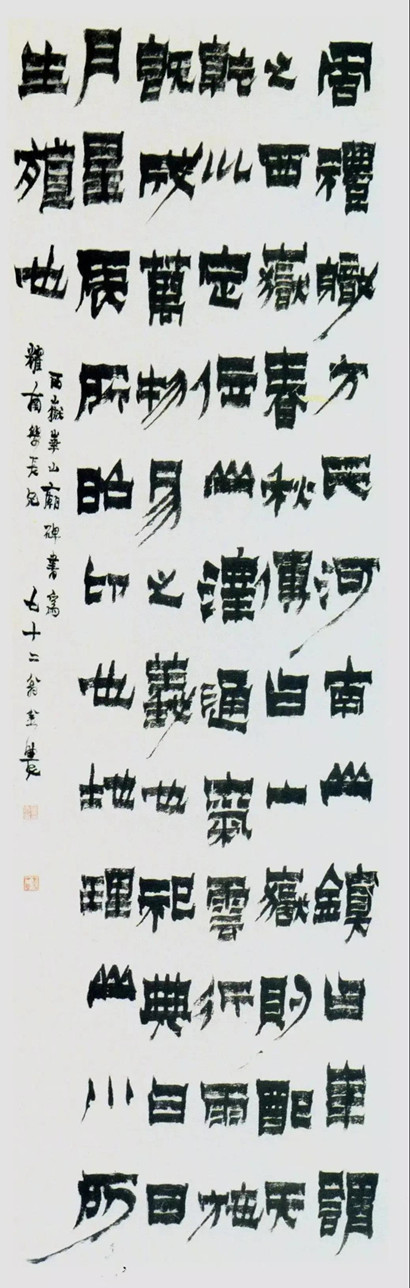 周禮職方氏河南山鎮曰華謂
之西嶽春秋傳曰山嶽則配天
乾巛定位山澤通氣雲行雨施
既成萬物易之義也祀典曰日
月星辰所昭卬也地理山川所
生殖也
西嶽華山廟碑書寫
耀南學長兄 七十二翁金農